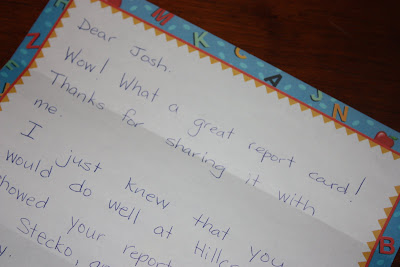 Dear Josh.
Wow! What a great report card!
Thanks for sharing it with
me.
I just knew that you
would do well at
showed your report
Stecko,